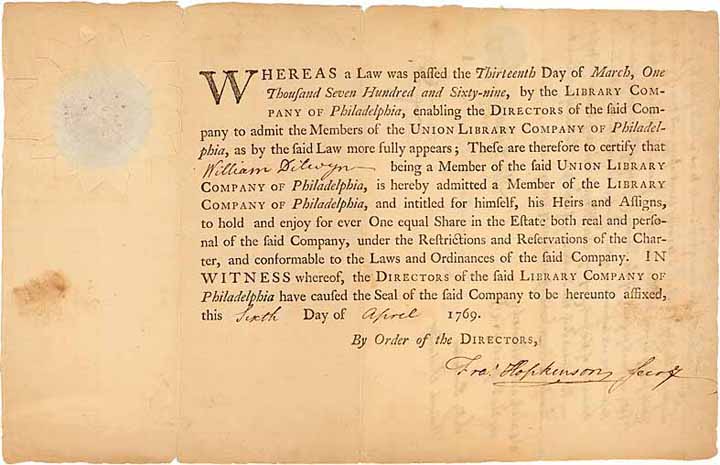 WHEREAS a Law was paſſed the Thirteenth Day of March, One
Thouſand Seven Hundred and Sixty-nine, by the LIBRARY COM-
PANY OF Philadelphia, enabling the DIRECTORS of the ſaid Com-
pany to admit the Members of the UNION LIBRARY COMPANY OF Philadel-
phia, as by the ſaid Law more fully appears; Theſe are therefore to certify that
William Dilwyn being a Member of the ſaid UNION LIBRARY
COMPANY OF Philadelphia, is hereby admitted a Member of the LIBRARY
COMPANY OF Philadelphia, and intitled for himſelf, his Heirs and Aſſigns,
to hold and enjoy for ever One equal Share in the Eſtate both real and perſo-
nal of the ſaid Company, under the Reſtrictions and Reſervations of the Char-
ter, and conformable to the Laws and Ordinances of the ſaid Company. IN
WITNESS whereof, the DIRECTORS of the ſaid LIBRARY COMPANY OF
Philadelphia have cauſed the Seal of the ſaid Company to be hereunto affixed,
this Sixth Day of April 1769.
By Order of the DIRECTORS,
Fra.s Hopkinson Secry